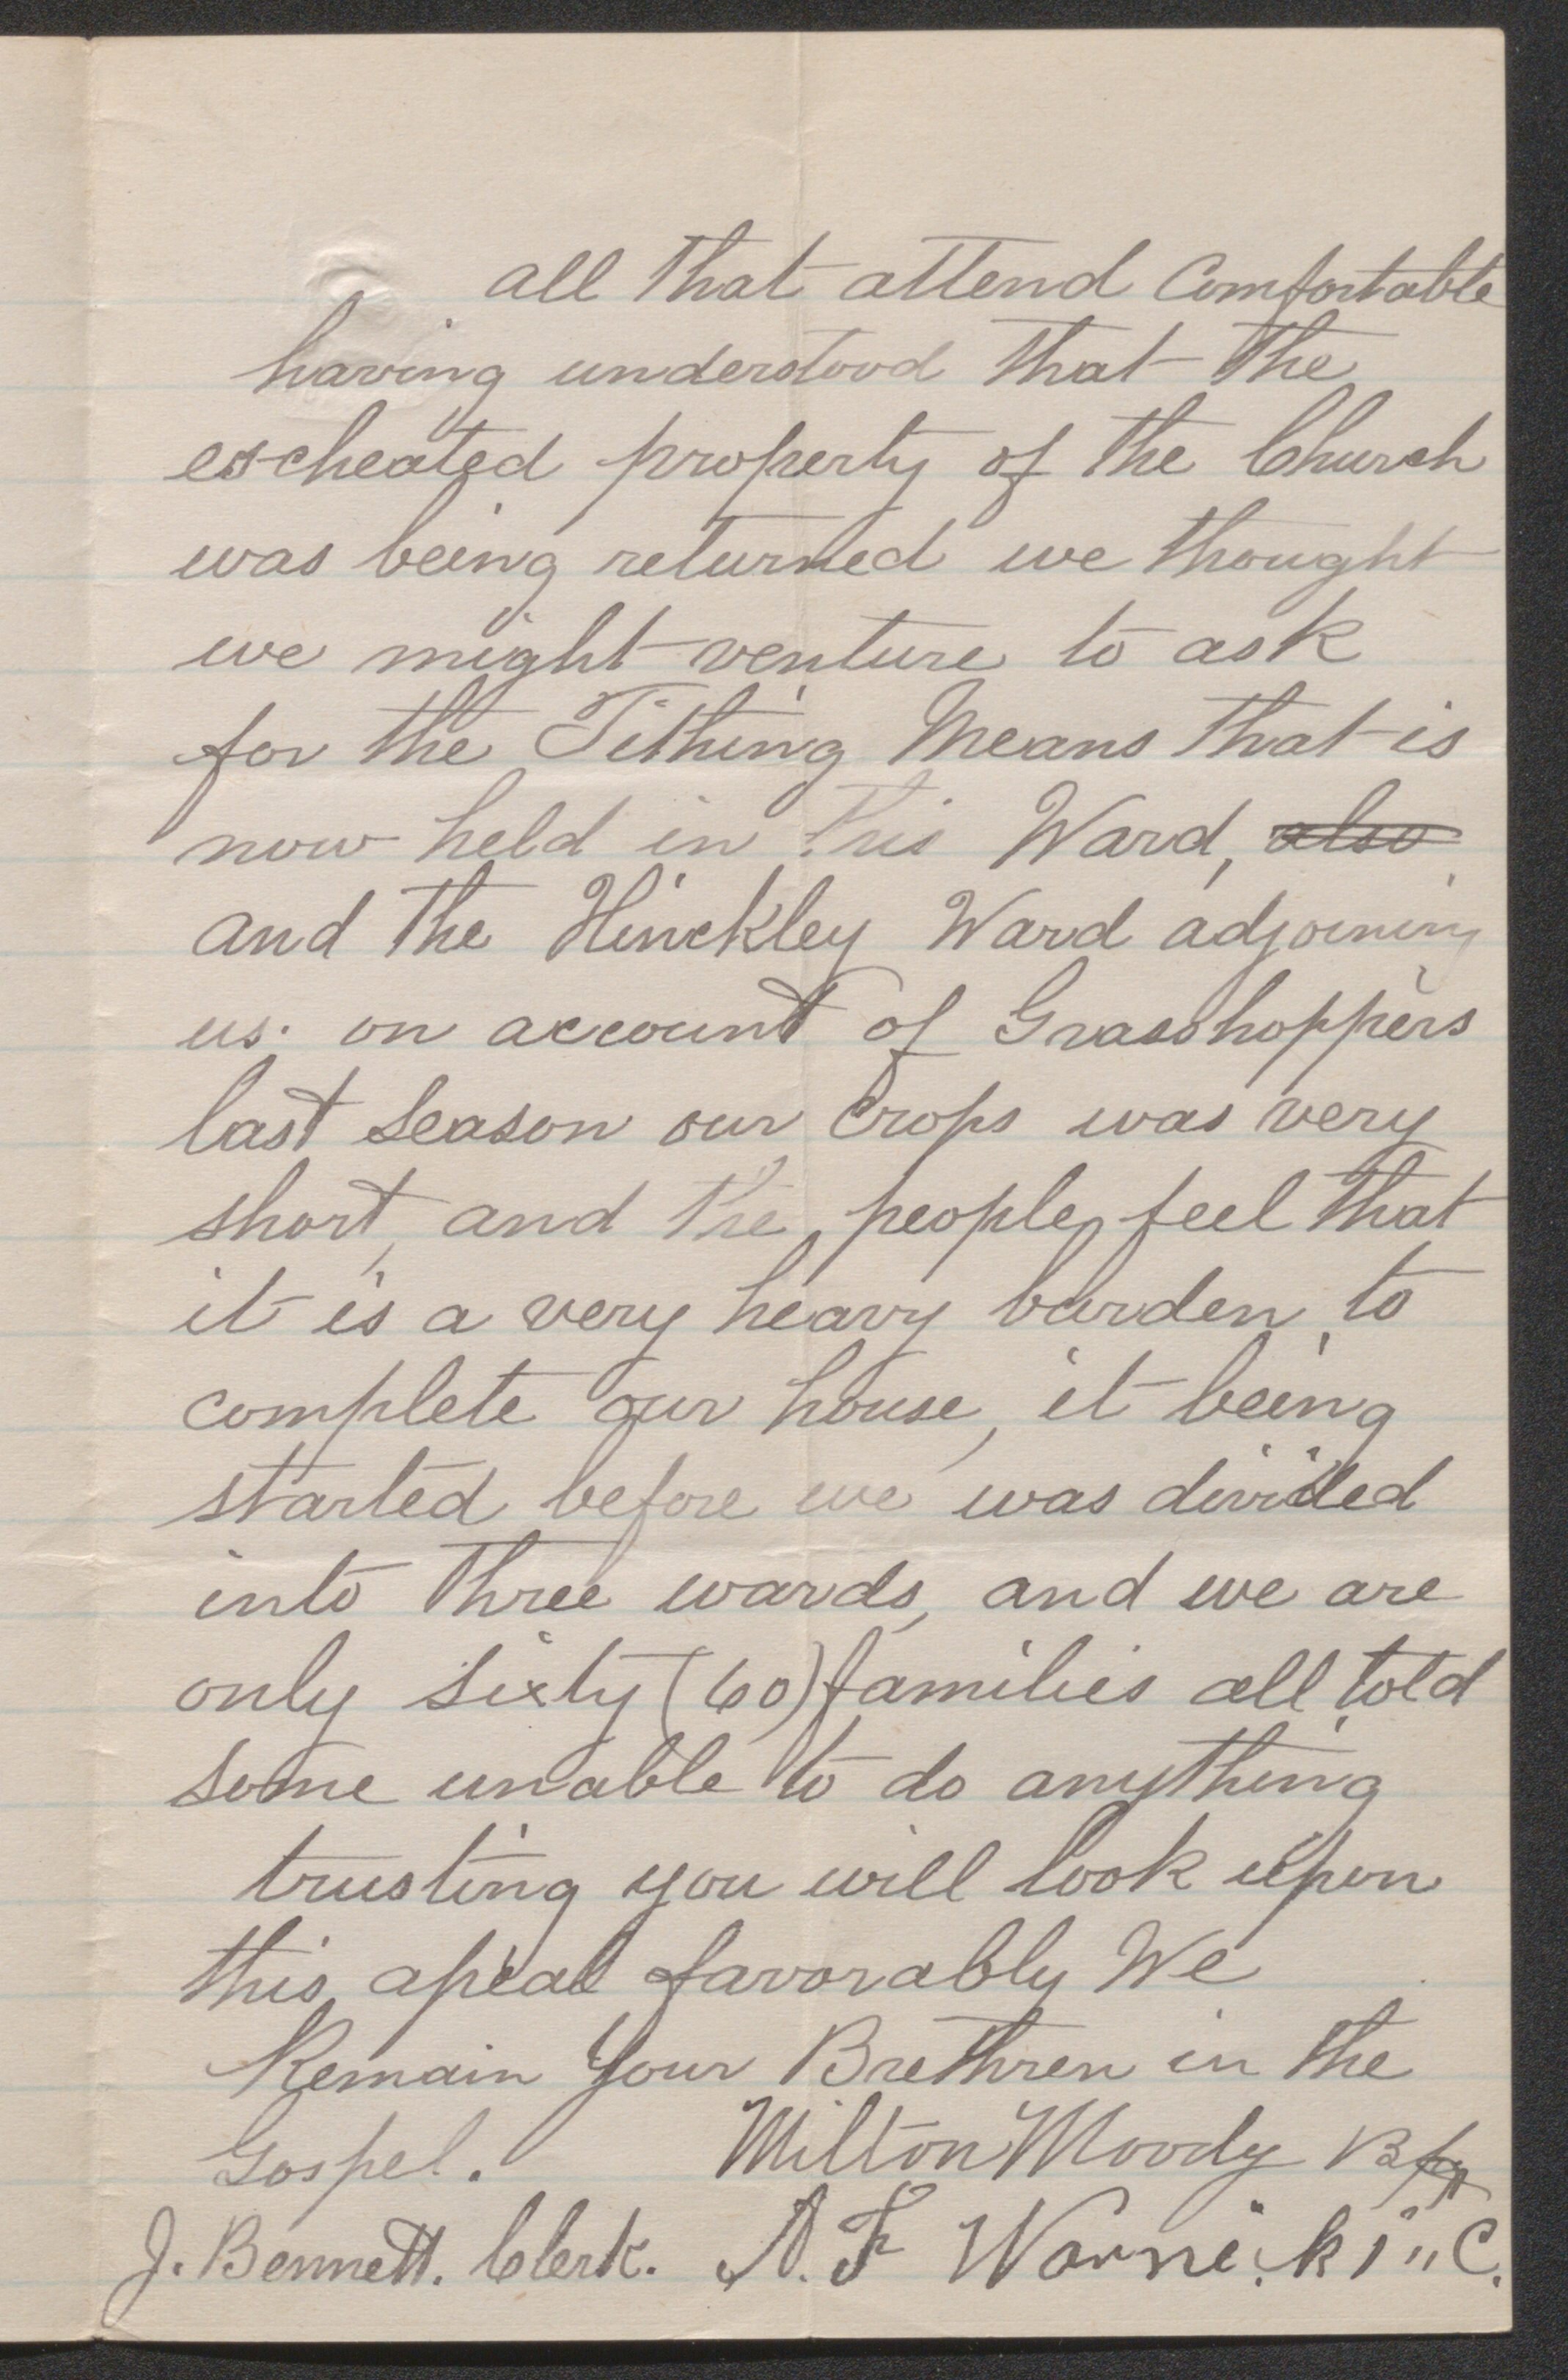 all that attend Comfortable
having understood that the
escheated property of the Church
was being returned we thought
we might venture to ask
for the Tithing Means that is
now held in this Ward, also
and the Hinckley Ward adjoining
us. on account of Grasshoppers
last season our Crops was very
short, and the people, feel that
it is a very heavy burden to
complete our house, it being
started before we was divided
into three wards, and we are
only sixty (60) families all told
some unable to do anything
trusting you will look upon
this apeal favorably We
Remain Your Brethren in the
Gospel. Milton Moody
J. Bennett. Clerk. N. F Warnick 1" C.